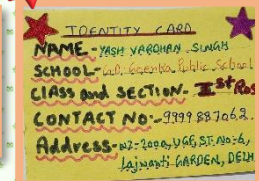 IDENTITY CARD
NAME - YASH VARDHAN SINGH
SCHOOL - G.D. Goenka Public School
ClASS and SECTION - Ist Ros
CONTACT NO:- 9999887062
Address - WZ-200A, UGF, ST. NO:-6,
Lajwanti GARDEN, DELH